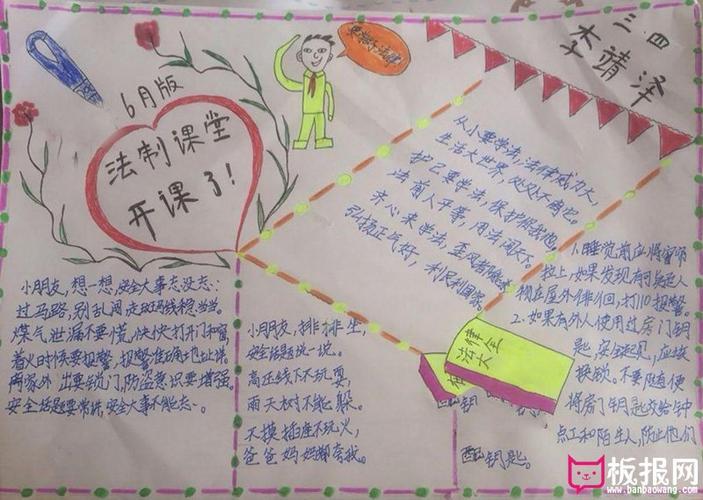 6月版
法制课堂
开课了!
三.四
李靖泽
从小要学法,法律威力大,
生活大世界,处处不离它。
护己要学法,保护你我他。
法前人平事,用法闯天下。
齐心来学法,歪风
弘扬正气好,利民利国家。
小朋友,想一想,安全大事忘没忘:
过马路,别乱闯,走斑马线稳当当。
煤气泄漏不要慌,快快打开门和窗
着火时候要报警,报警准确地址详。
两家外出要锁门,防盗意识要增强。
安全话题要常讲,安全大事不能忘。
小朋友,排排坐,
安全话题说一说。
高压线下不玩耍,
雨天树下不能躲。
不摸插座不玩火,
爸爸妈妈都夸我。
律全
法大
1.睡觉前应将窗帘
拉上,如果发现有可疑人
物在屋外徘徊,打110报警
2.如果有外人使用过房门钥
匙,安全起见,应该
换锁。不要随便
将房门钥匙交给钟
点工和陌生人,防止他们
配钥匙。
板报网
www.banbaowang.com